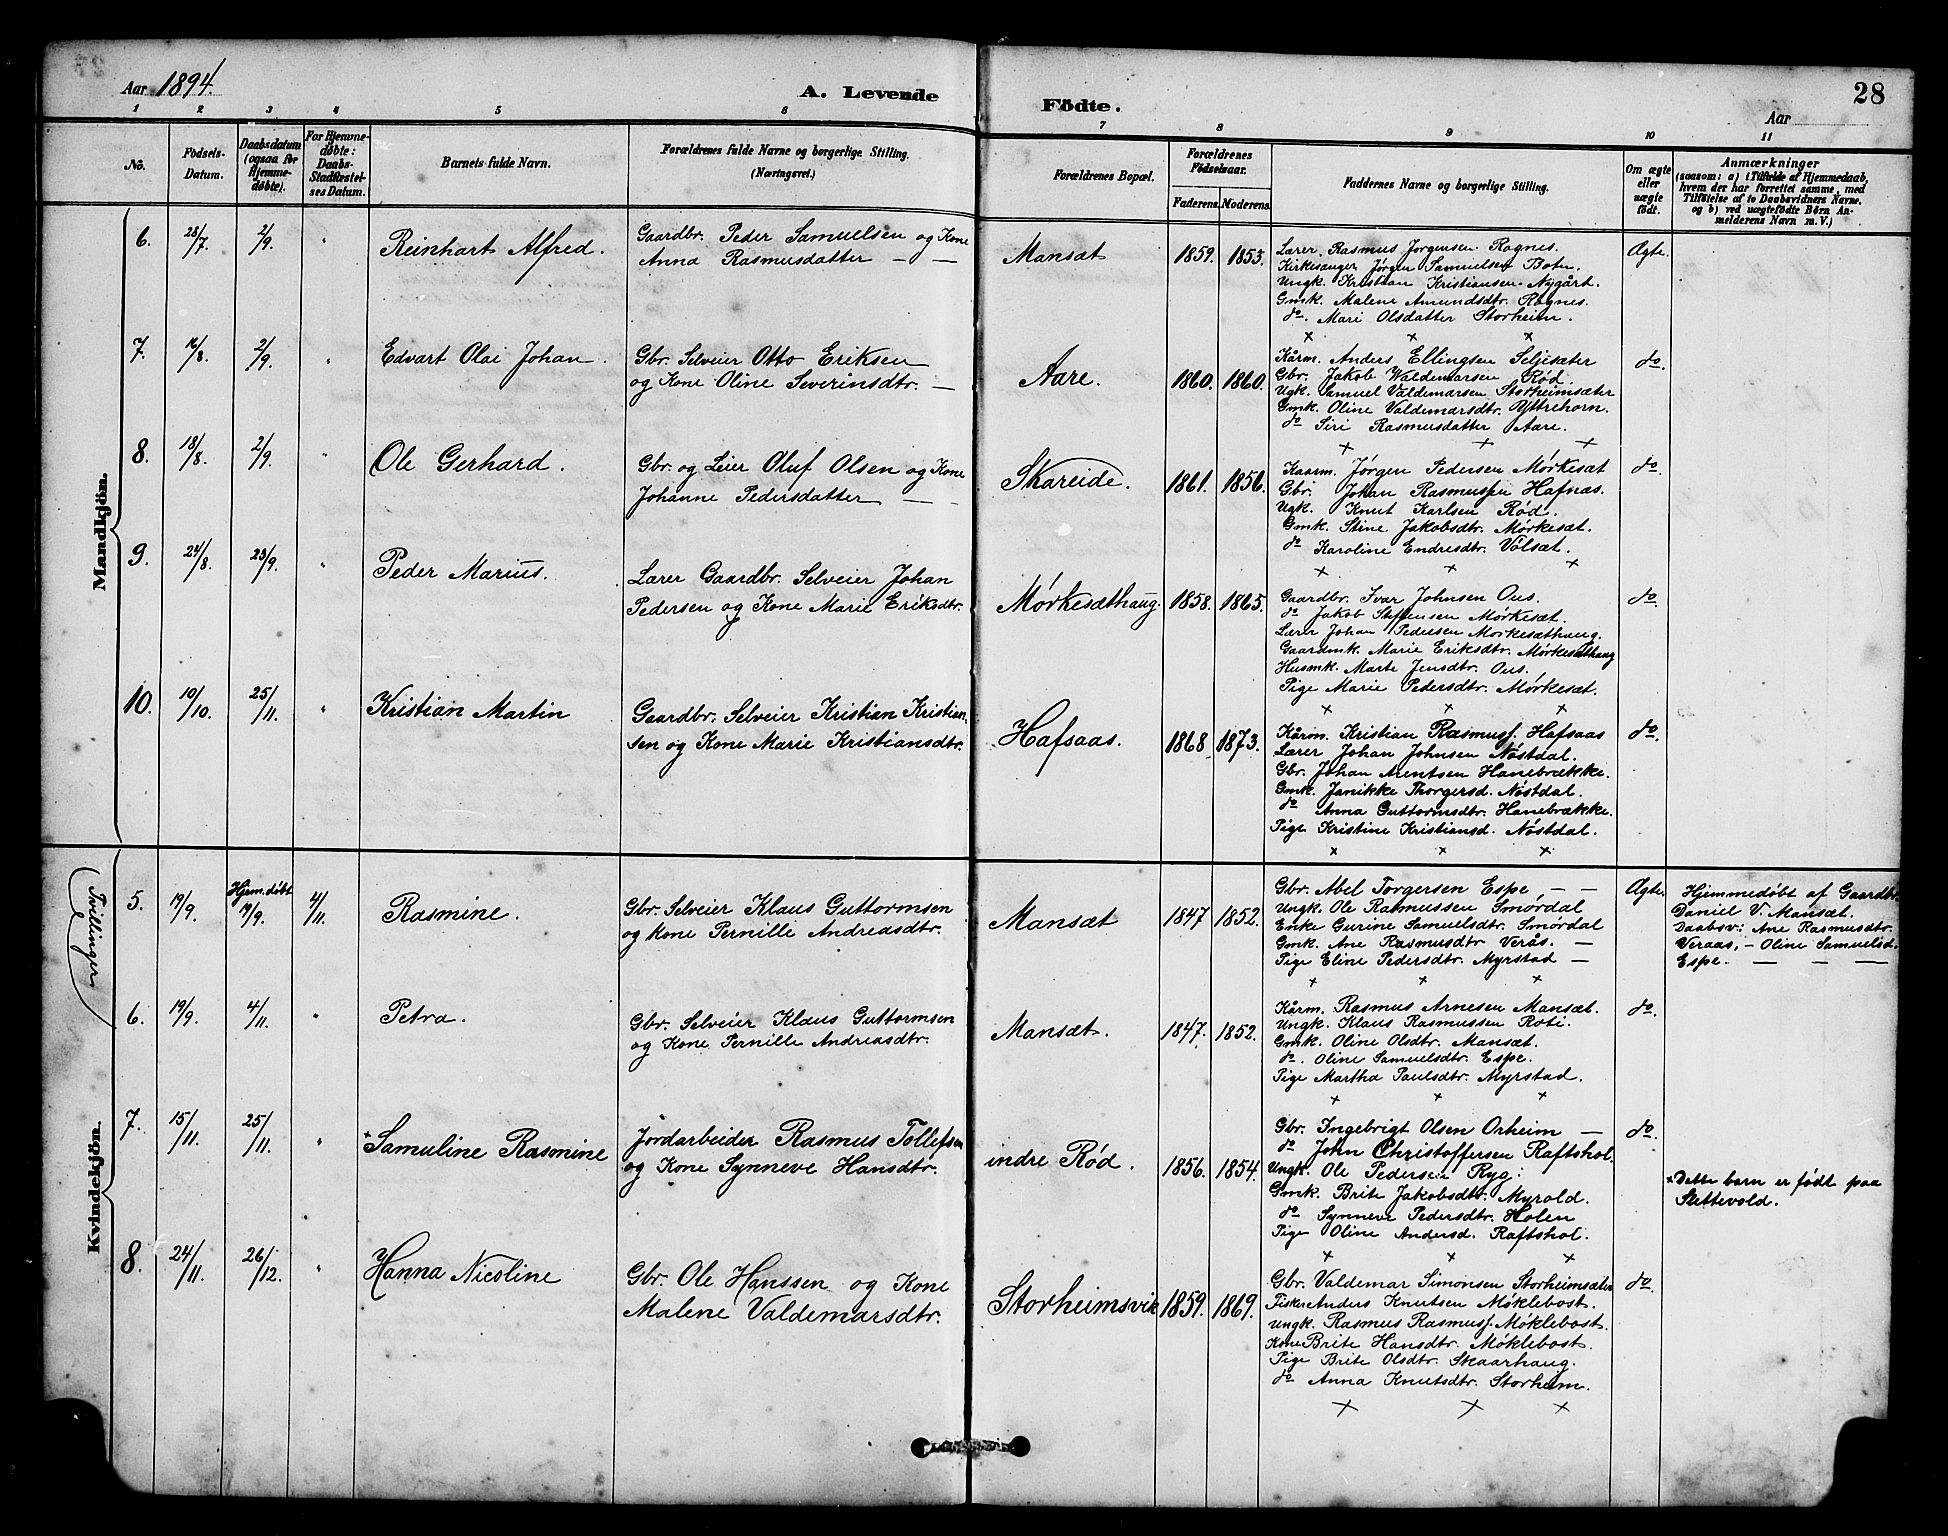 Aar 1894.
A. Levende Födte.
Aar
28
1 2 3 4 5 6 7 8 9 10 11
No.
Födsels-Datum.
Daabsdatum (ogsaa for Hjemmedöbte).
For Hjemmedøbte: Daabs-Stadfæstelses Datum.
Barnets fulde Navn.
Forældrenes fulde Navne og borgerlige Stilling. (Næringsvei.)
Forældrenes Bopæl.
Forældrenes Födselsaar.
Faderens. Moderens.
Faddernes Navne og borgerlige Stilling.
Om ægte eller uægte födt.
Anmærkninger
(saasom: a) i Tilfælde af Hjemmedaab,
hvem der har forrettet samme, med
Tilföielse af to Daabsvidners Navne,
og b) ved uægtefödte Börn An-
melderens Navn m. V.)
Mandkjön.
6. 28/7 2/9 " Reinhart Alfred.
Gaardbr. Peder Samuelsen og Kone
Anna Rasmusdatter — —
Mansæt 1859. 1853.
Lærer. Rasmus Jørgensen Ragnes.
Kirkesanger Jørgen Samuelsen Botn.
Ungk. Kristian Kristiansen Nygårt.
Gmk. Malene Amundsdtr. Ragnes.
do. Mari Olsdatter Storheim.
x x x
Ægte.
7. 16/8 2/9 " Edvart Olai Johan.
Gbr. Selveier Otto Eriksen
og Kone Oline Severinsdtr. —
Aare. 1860. 1860.
Kårm. Anders Ellingsen Seljesæter
Gbr. Jakob Waldemarsen Rød.
Ugk. Samuel Valdemarsen Storheimsæter
Gmk. Oline Valdemarsdtr. Yttrehorn.
do Siri Rasmusdatter Aare.
x x x
do.
8. 18/8 2/9 " Ole Gerhard.
Gbr. og Leier Oluf Olsen og Kone
Johanne Pedersdatter — —
Skareide. 1861. 1856.
Kaarm. Jørgen Pedersen Mørkesæt
Gbr. Johan Rasmussen Hafnas.
Ugk. Knut Karlsen Rød.
Gmk. Stine Jakobsdtr. Mørkesæt.
do Karoline Endresdtr. Vølsæt.
x x x
do.
9. 24/8 23/9 " Peder Marius.
Lærer Gaardbr. Selveier Johan
Pedersen og Kone Marie Eriksdtr.
Mørkesæthaug. 1858. 1865.
Gaardbr. Ivar Johnsen Ous.
do Jakob Steffensen Mørkesæt.
Lærer Johan Pedersen Mørkesæthaug.
Gaardmk. Marie Eriksdtr. Mørkesæthaug
Husmk. Marte Jensdtr. Ous.
Pige Marie Pedersdtr. Mørkesæt.
x x x
do.
10. 19/10 25/11. " Kristian Martin
Gaardbr. Selveier Kristian Kristian-
sen og Kone Marie Kristiansdtr.
Hafsaas. 1868. 1873.
Kårm. Kristian Rasmuss. Hafsaas
Lærer Johan Johnsen Nøstdal.
Gbr. Johan Arentsen Hanebrække.
Gmk. Janikke Thorgersd. Nøstdal.
do Anna Guttormsdtr. Hanebrække.
Pige Kristine Kristiansd. Nøstdal.
x x x
do.
Kvindekjön.
Tvillinger
5. 19/9. Hjem.døbt 19/9. 4/11. Rasmine.
Gbr. Selveier Klaus Guttormsen
og Kone Pernille Andreasdtr.
Mansæt 1847 1852.
Gbr. Abel Torgersen Espe — —
Ungk. Ole Rasmussen Smørdal
Enke Gurine Samuelsdtr. Smørdal
Gmk. Ane Rasmusdtr Verås. —
Pige Eline Pedersdtr. Myrstad —
x x x
Ægte.
Hjemmedøbt af Gaardbr.
Daniel V. Mansæt.
Daabsv: Ane Rasmusdtr.
Veraas, — Oline Samuelsd.
Espe. — — —
6. 19/9. 4/11. " Petra.
Gbr. Selveier Klaus Guttormsen
og Kone Pernille Andreasdtr.
Mansæt. 1847. 1852.
Kårm. Rasmus Arnesen Mansæt.
Ungk. Klaus Rasmussen Roti.
Gmk. Oline Olsdtr. Mansæt.
do. Oline Samuelsdtr. Espe.
Pige Martha Paulsdtr. Myrstad.
x x x
do.
7. 15/11. 25/11. " x Samuline Rasmine
Jordarbeider Rasmus Tollefsen
og Kone Synneve Hansdtr.
indre Rød. 1856. 1854.
Gbr. Ingebrigt Olsen Orheim —
do John Christoffersen Raftshol.
Ungk. Ole Pedersen Ryg.
Gmk. Brite Jakobsdtr. Myrold.
do Synneve Pedersdtr. Holen
Pige Oline Andersd. Raftshol.
x x x
do.
x Dette barn er født paa
Slettevold.
8. 24/11. 26/12. " Hanna Nicoline
Gbr. Ole Hanssen og Kone
Malene Valdemarsdtr.
Storheimsvik 1859. 1869.
Gbr. Valdemar Simonsen Storheimsæter
Fisker Anders Knutsen Møklebost.
Ungk. Rasmus Rasmuss. Møklebost.
Kone Brite Hansdtr. Møklebost.
Pige Brite Olsdtr. Skaarhaug.
do Anna Knutsdtr. Storheim.
x x x
do.